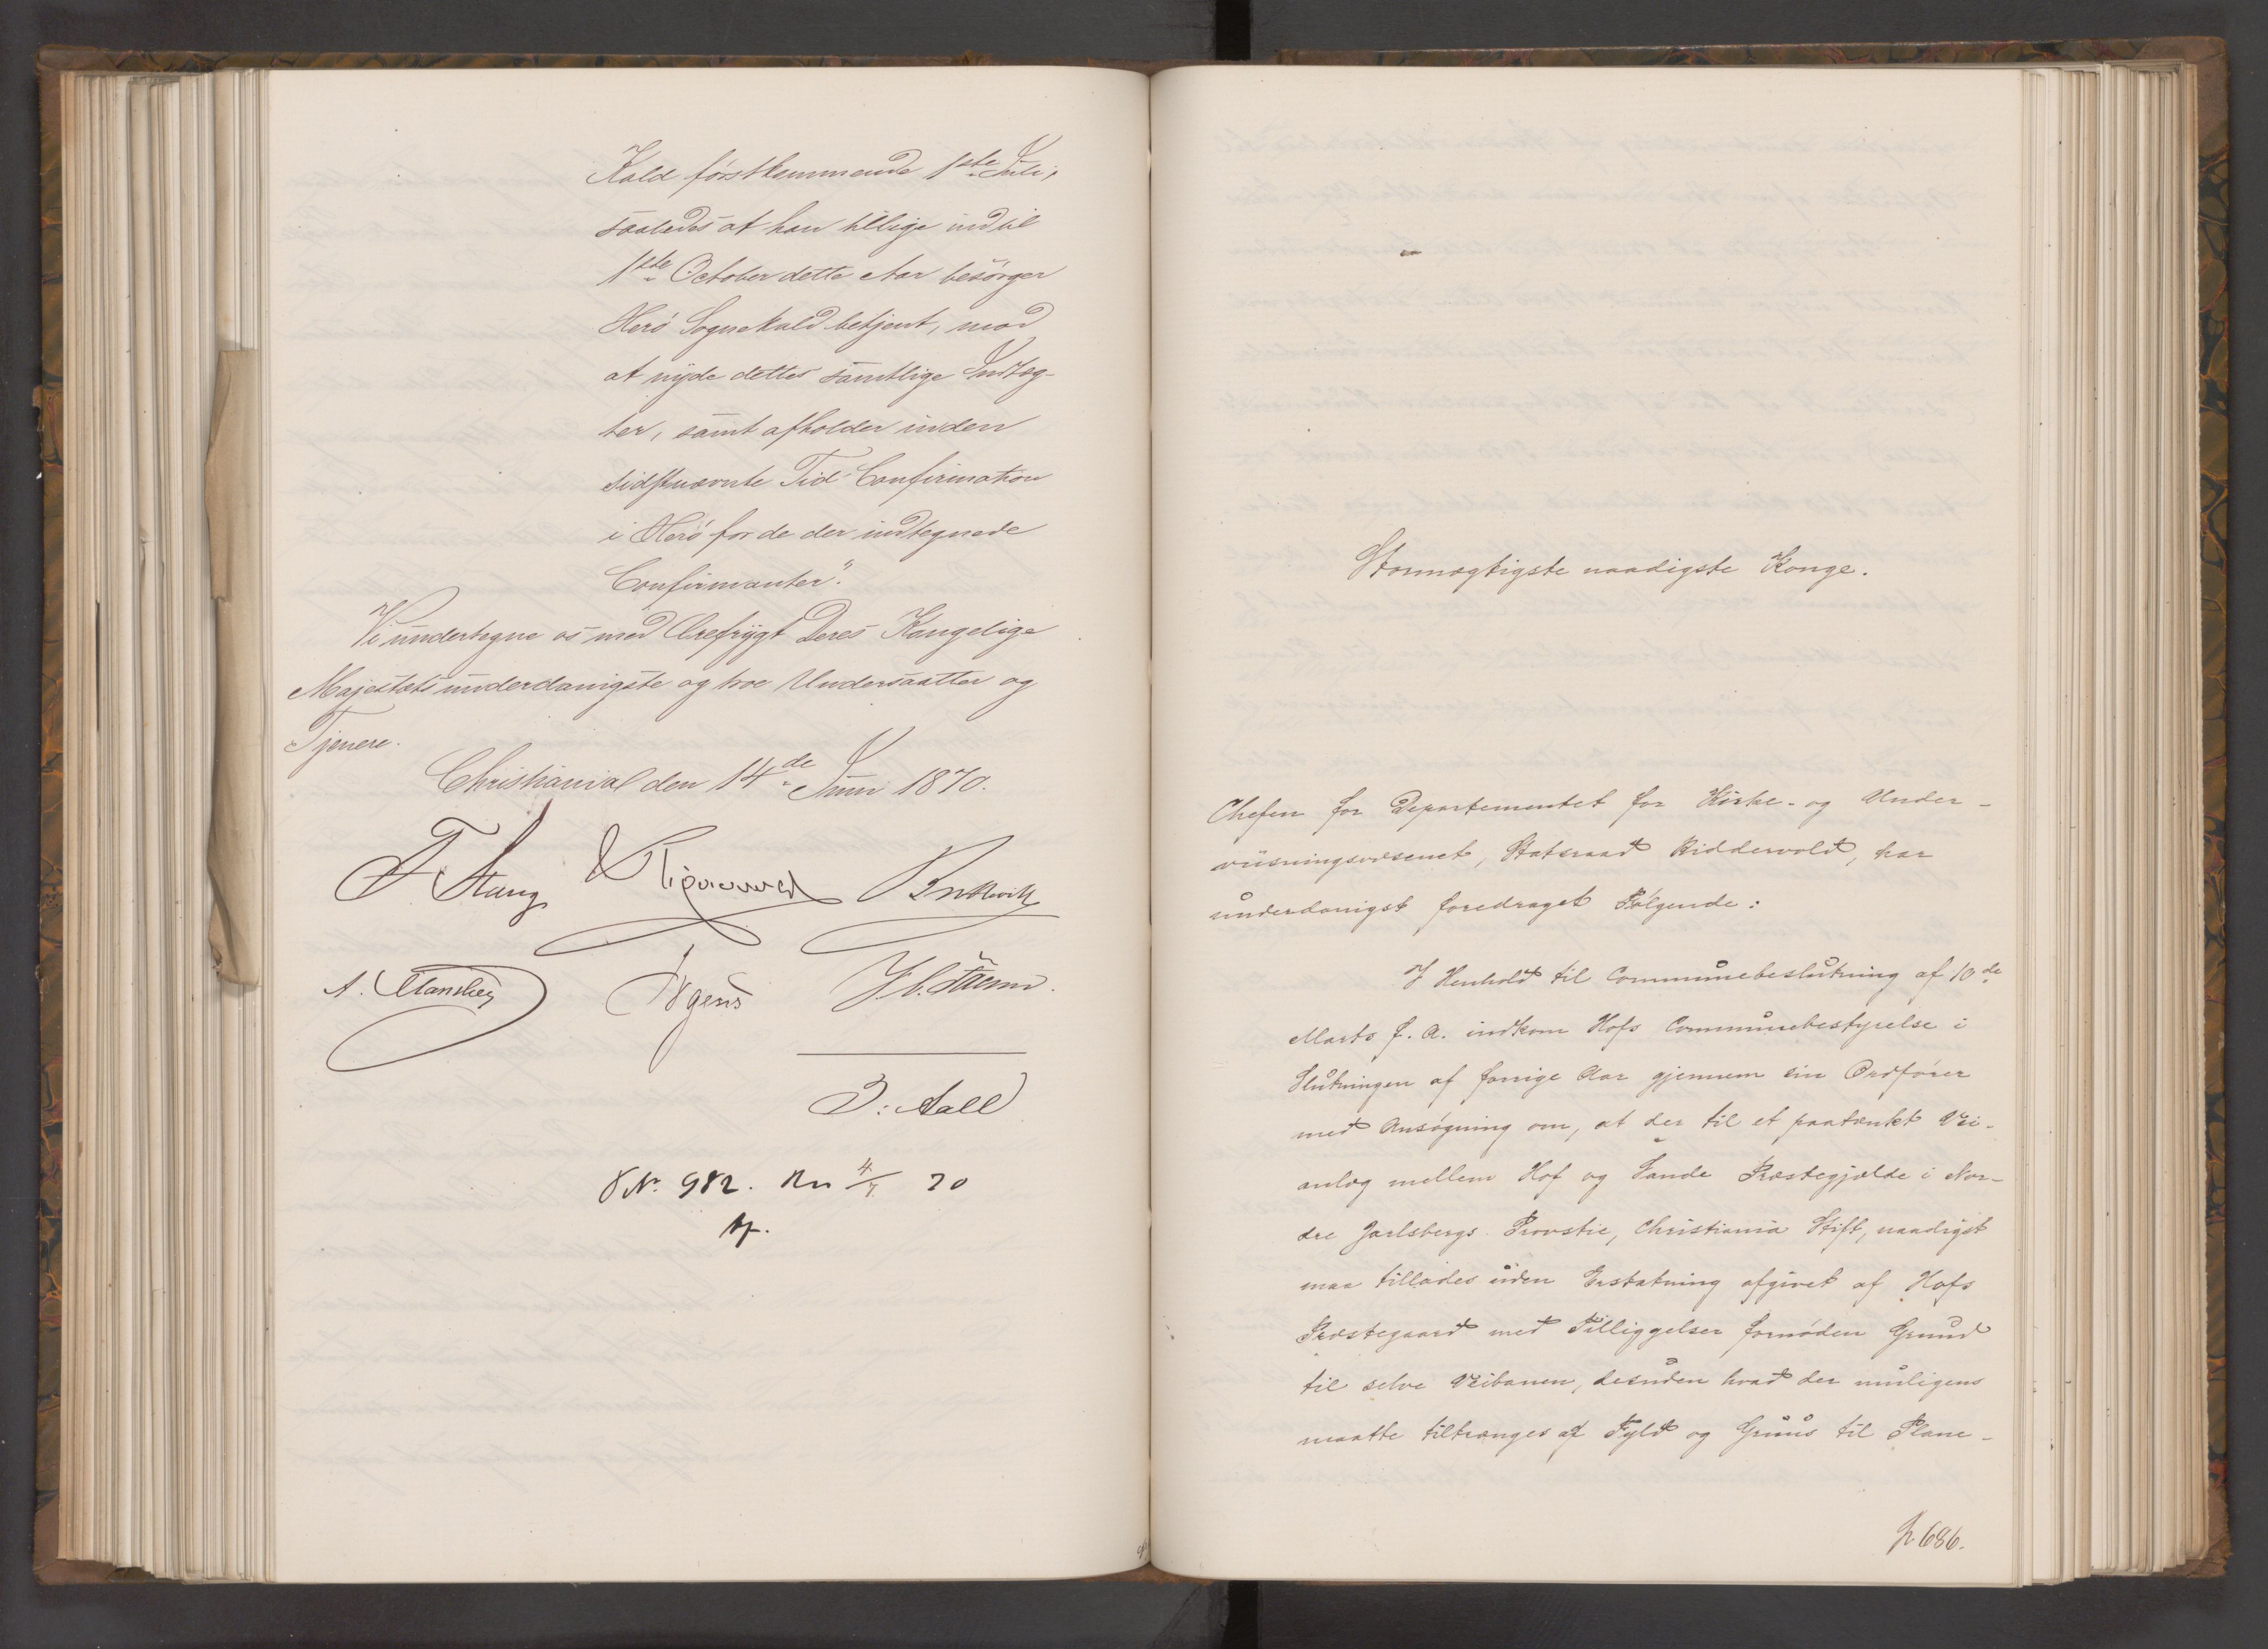 Kald førstkommende 1ste Juli,
saaledes at han tillige indtil
1ste October dette Aar besørger
Herø Sognekald betjent, mod
at nyde dettes samtlige Indtæg-
ter, samt afholder inden
sidstnævnte Tid Confirmation
i Herø for de der indtegnede
Confirmanter".
Vi undertegne os med Ærefrygt Deres Kongelige
Majestæts underdanigste og troe Undersaatter og
Tjenere.
Christiania den 14de Juni 1870.
F. Stang
A. Manthey Irgens
J. Aall
No. 982. 4/7 70
Stormægtigste naadigste Konge.
Chefen for Departementet for Kirke- og Under-
viisningsvæsenet, Statsraad Riddervold, har
underdanigst foredraget Følgende:
I Henhold til Communebeslutning af 10de
Marts f. A. indkom Hofs Communebestyrelse i
Slutningen af forrige Aar gjennem sin Ordfører
med Ansøgning om, at der til et paatænkt Vei-
anlæg mellem Hof og Sande Præstegjælde i Nor-
dre Jarlsbergs Provstie, Christiania Stift, naadigst
maa tillades uden Erstatning afgivet af Hofs
Præstegaard med Tilliggelser fornøden Grund
til selve Veibanen, desuden hvad der muligens
maatte tiltrænges af Fyld og Gruus til Plane-
p. 686.